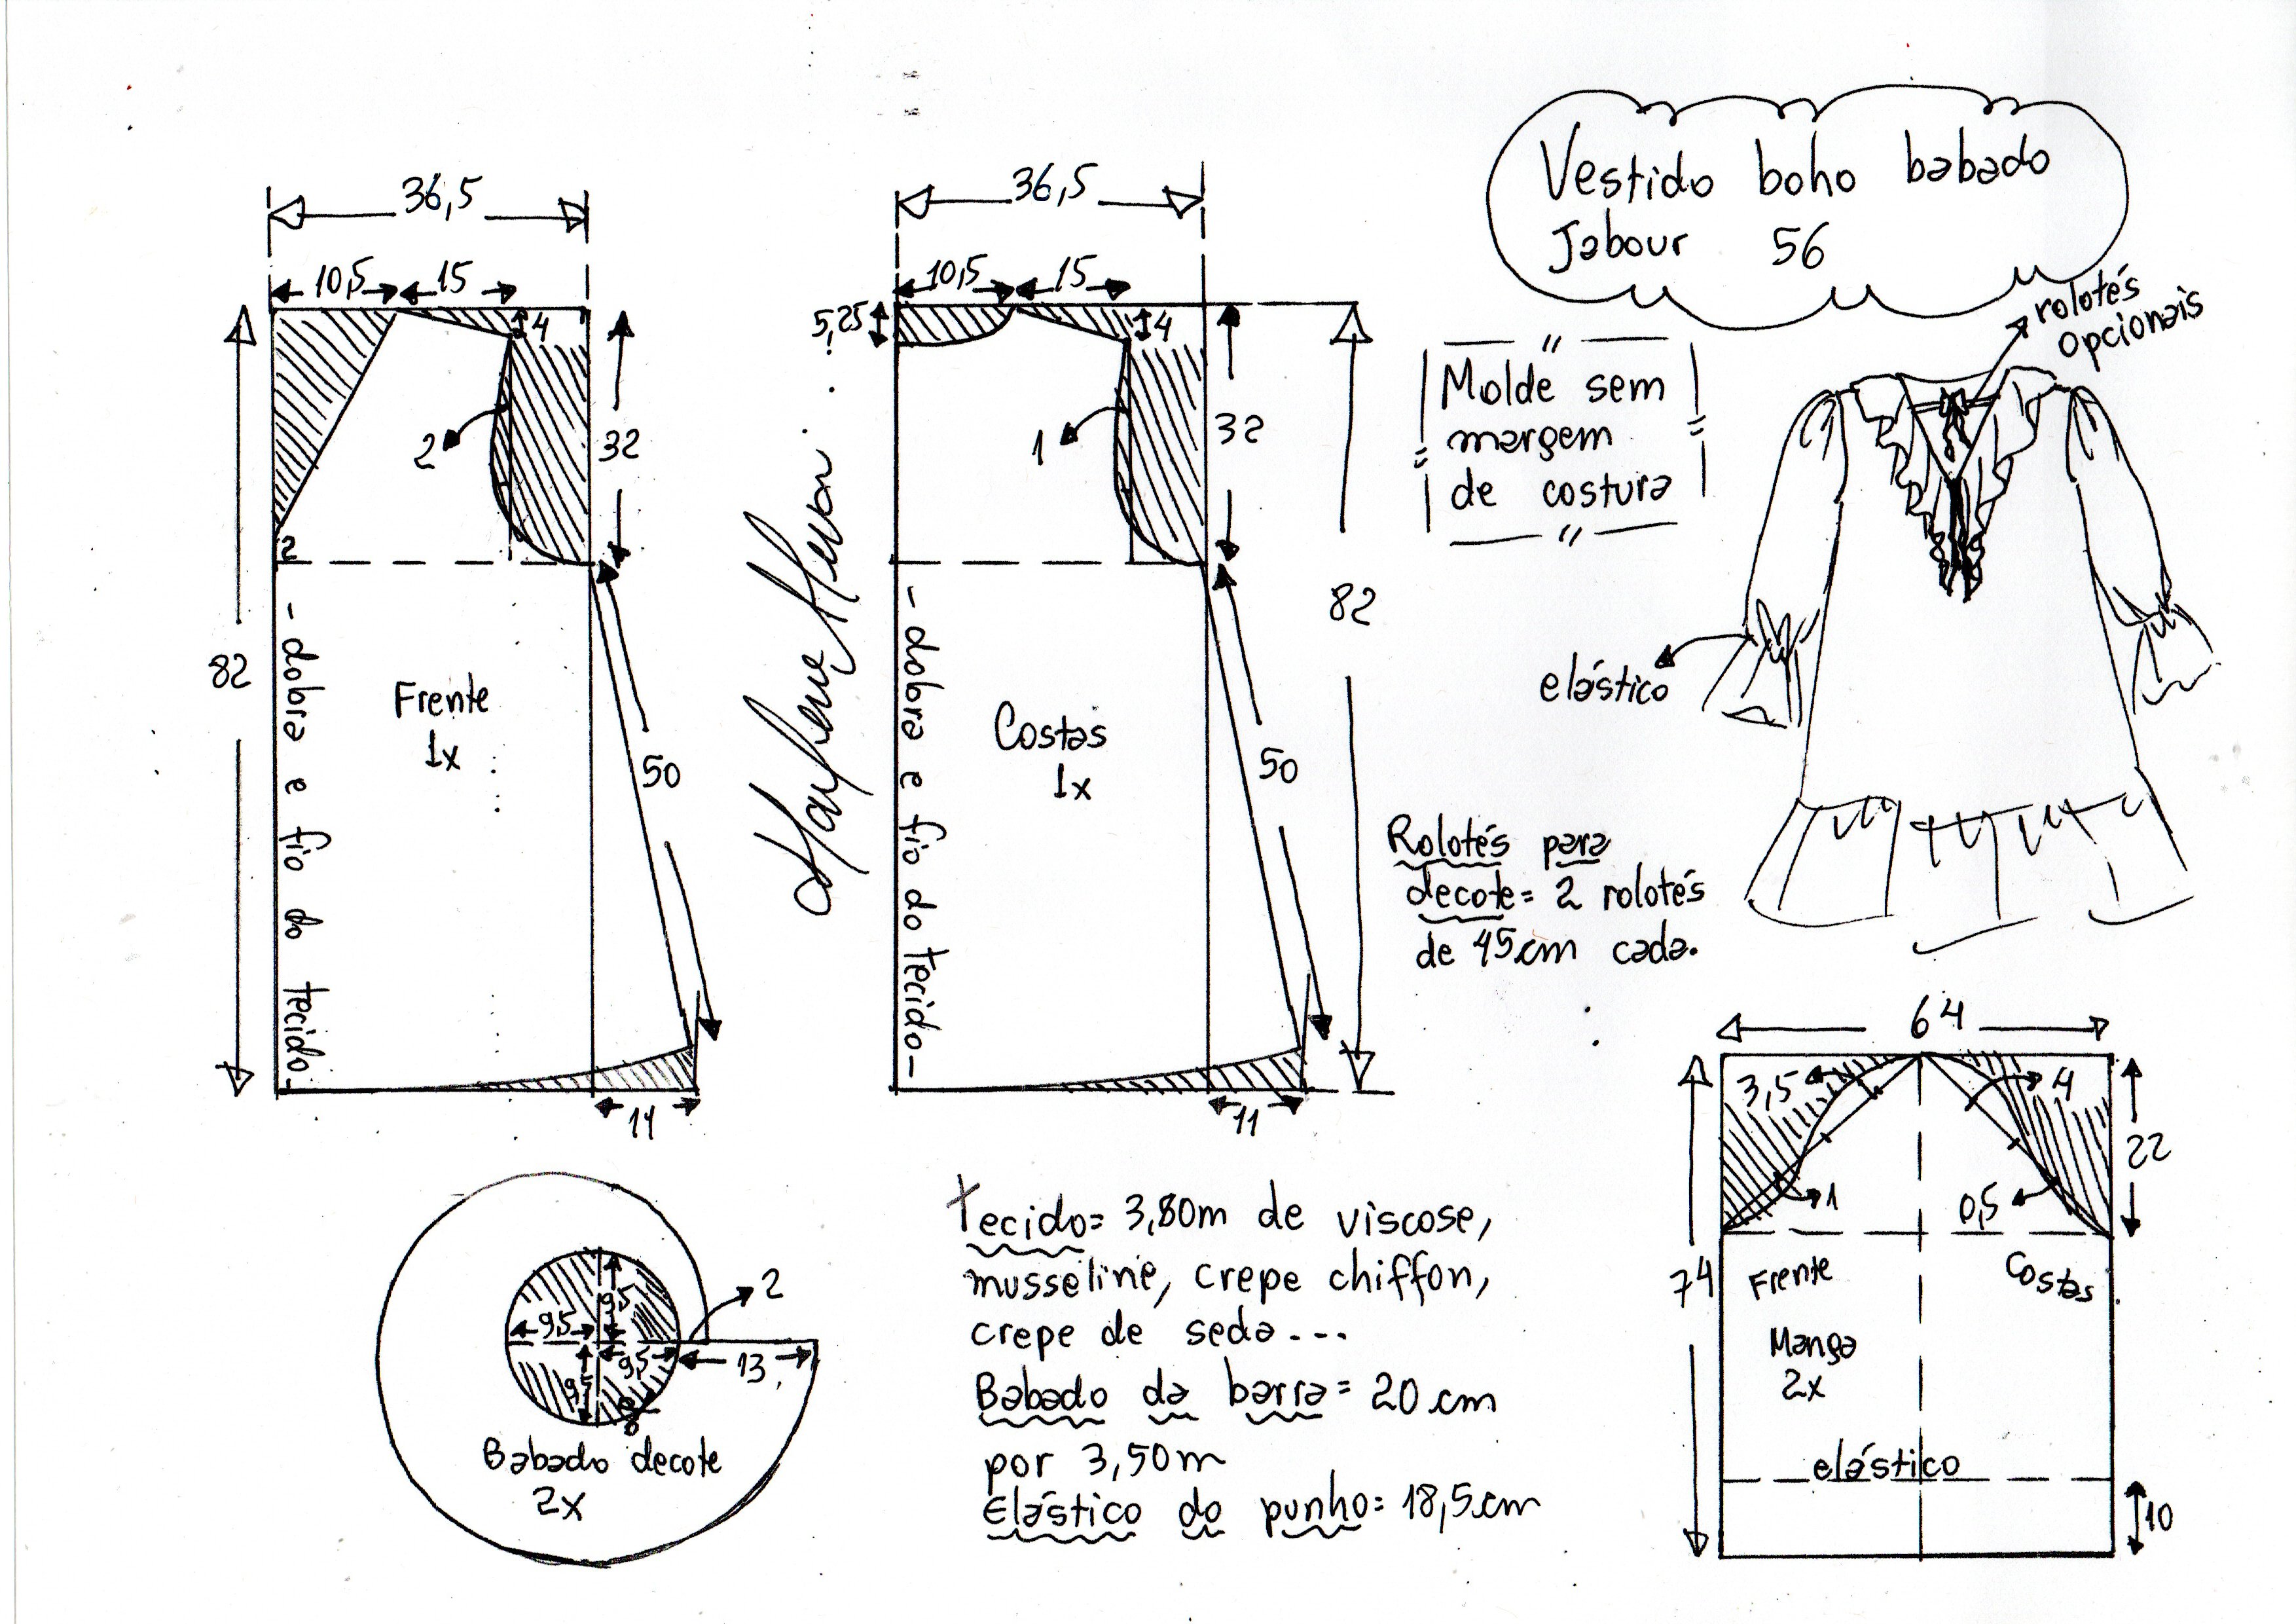 Vestido boho babado
Jabour 56
rolotés
opcionais
Molde sem
margem
de costura
elástico
Rolotés para
decote= 2 rolotés
de 45cm cada.
36,5
10,5
15
4
2
32
2
82
- dobra e fio do tecido -
Frente
1x
50
14
36,5
10,5
15
5,25
4
1
32
82
- dobra e fio do tecido -
Costas
1x
50
11
Marlene Mukai
9,5
9,5
9,5
9,5
2
13
Babado decote
2x
Tecido= 3,80m de viscose,
musseline, crepe chiffon,
crepe de seda...
Babado da barra= 20cm
por 3,50m
Elástico do punho= 18,5cm
64
3,5
4
22
1
0,5
74
Frente
Costas
Manga
2x
elástico
10